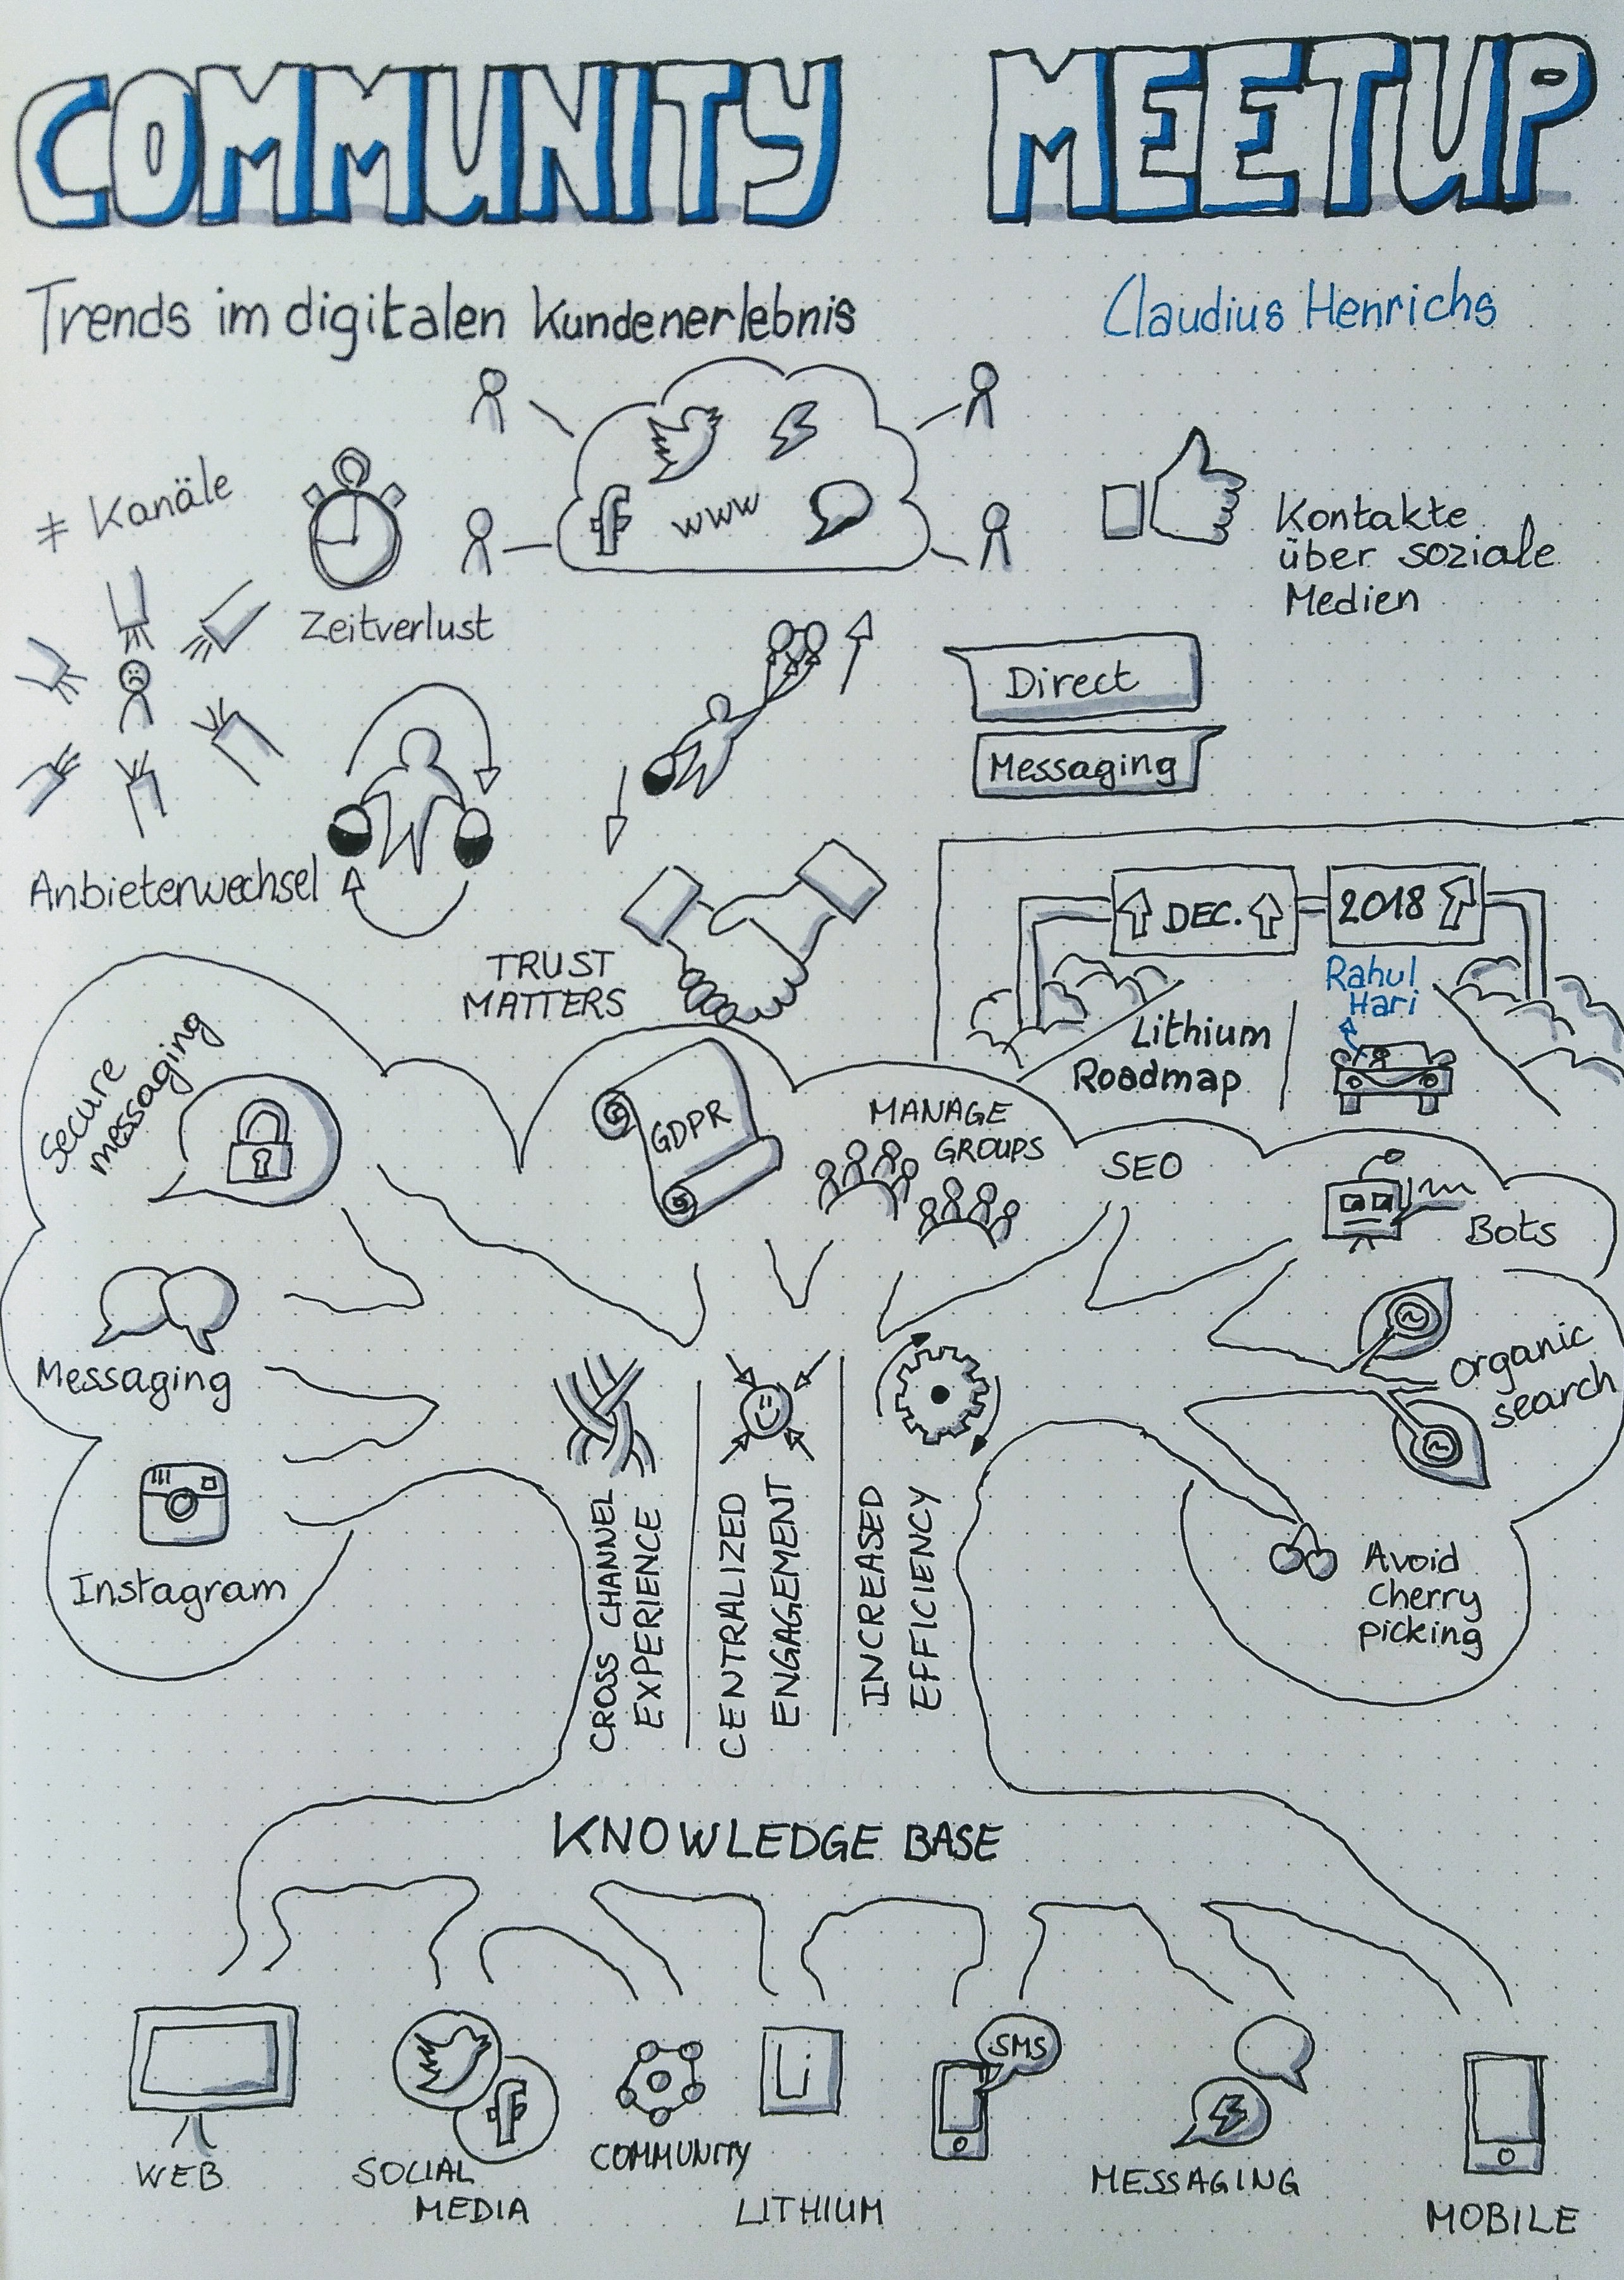 COMMUNITY MEETUP
Trends im digitalen Kundenerlebnis
Claudius Henrichs
≠ Kanäle
Zeitverlust
www
Kontakte
über soziale
Medien
Direct
Messaging
Anbieterwechsel
TRUST
MATTERS
DEC.
2018
Rahul
Hari
Lithium
Roadmap
Secure
messaging
GDPR
MANAGE
GROUPS
SEO
Bots
Messaging
organic
search
Instagram
Avoid
cherry
picking
CROSS CHANNEL
EXPERIENCE
CENTRALIZED
ENGAGEMENT
INCREASED
EFFICIENCY
KNOWLEDGE BASE
WEB
SOCIAL
MEDIA
COMMUNITY
Li
LITHIUM
SMS
MESSAGING
MOBILE